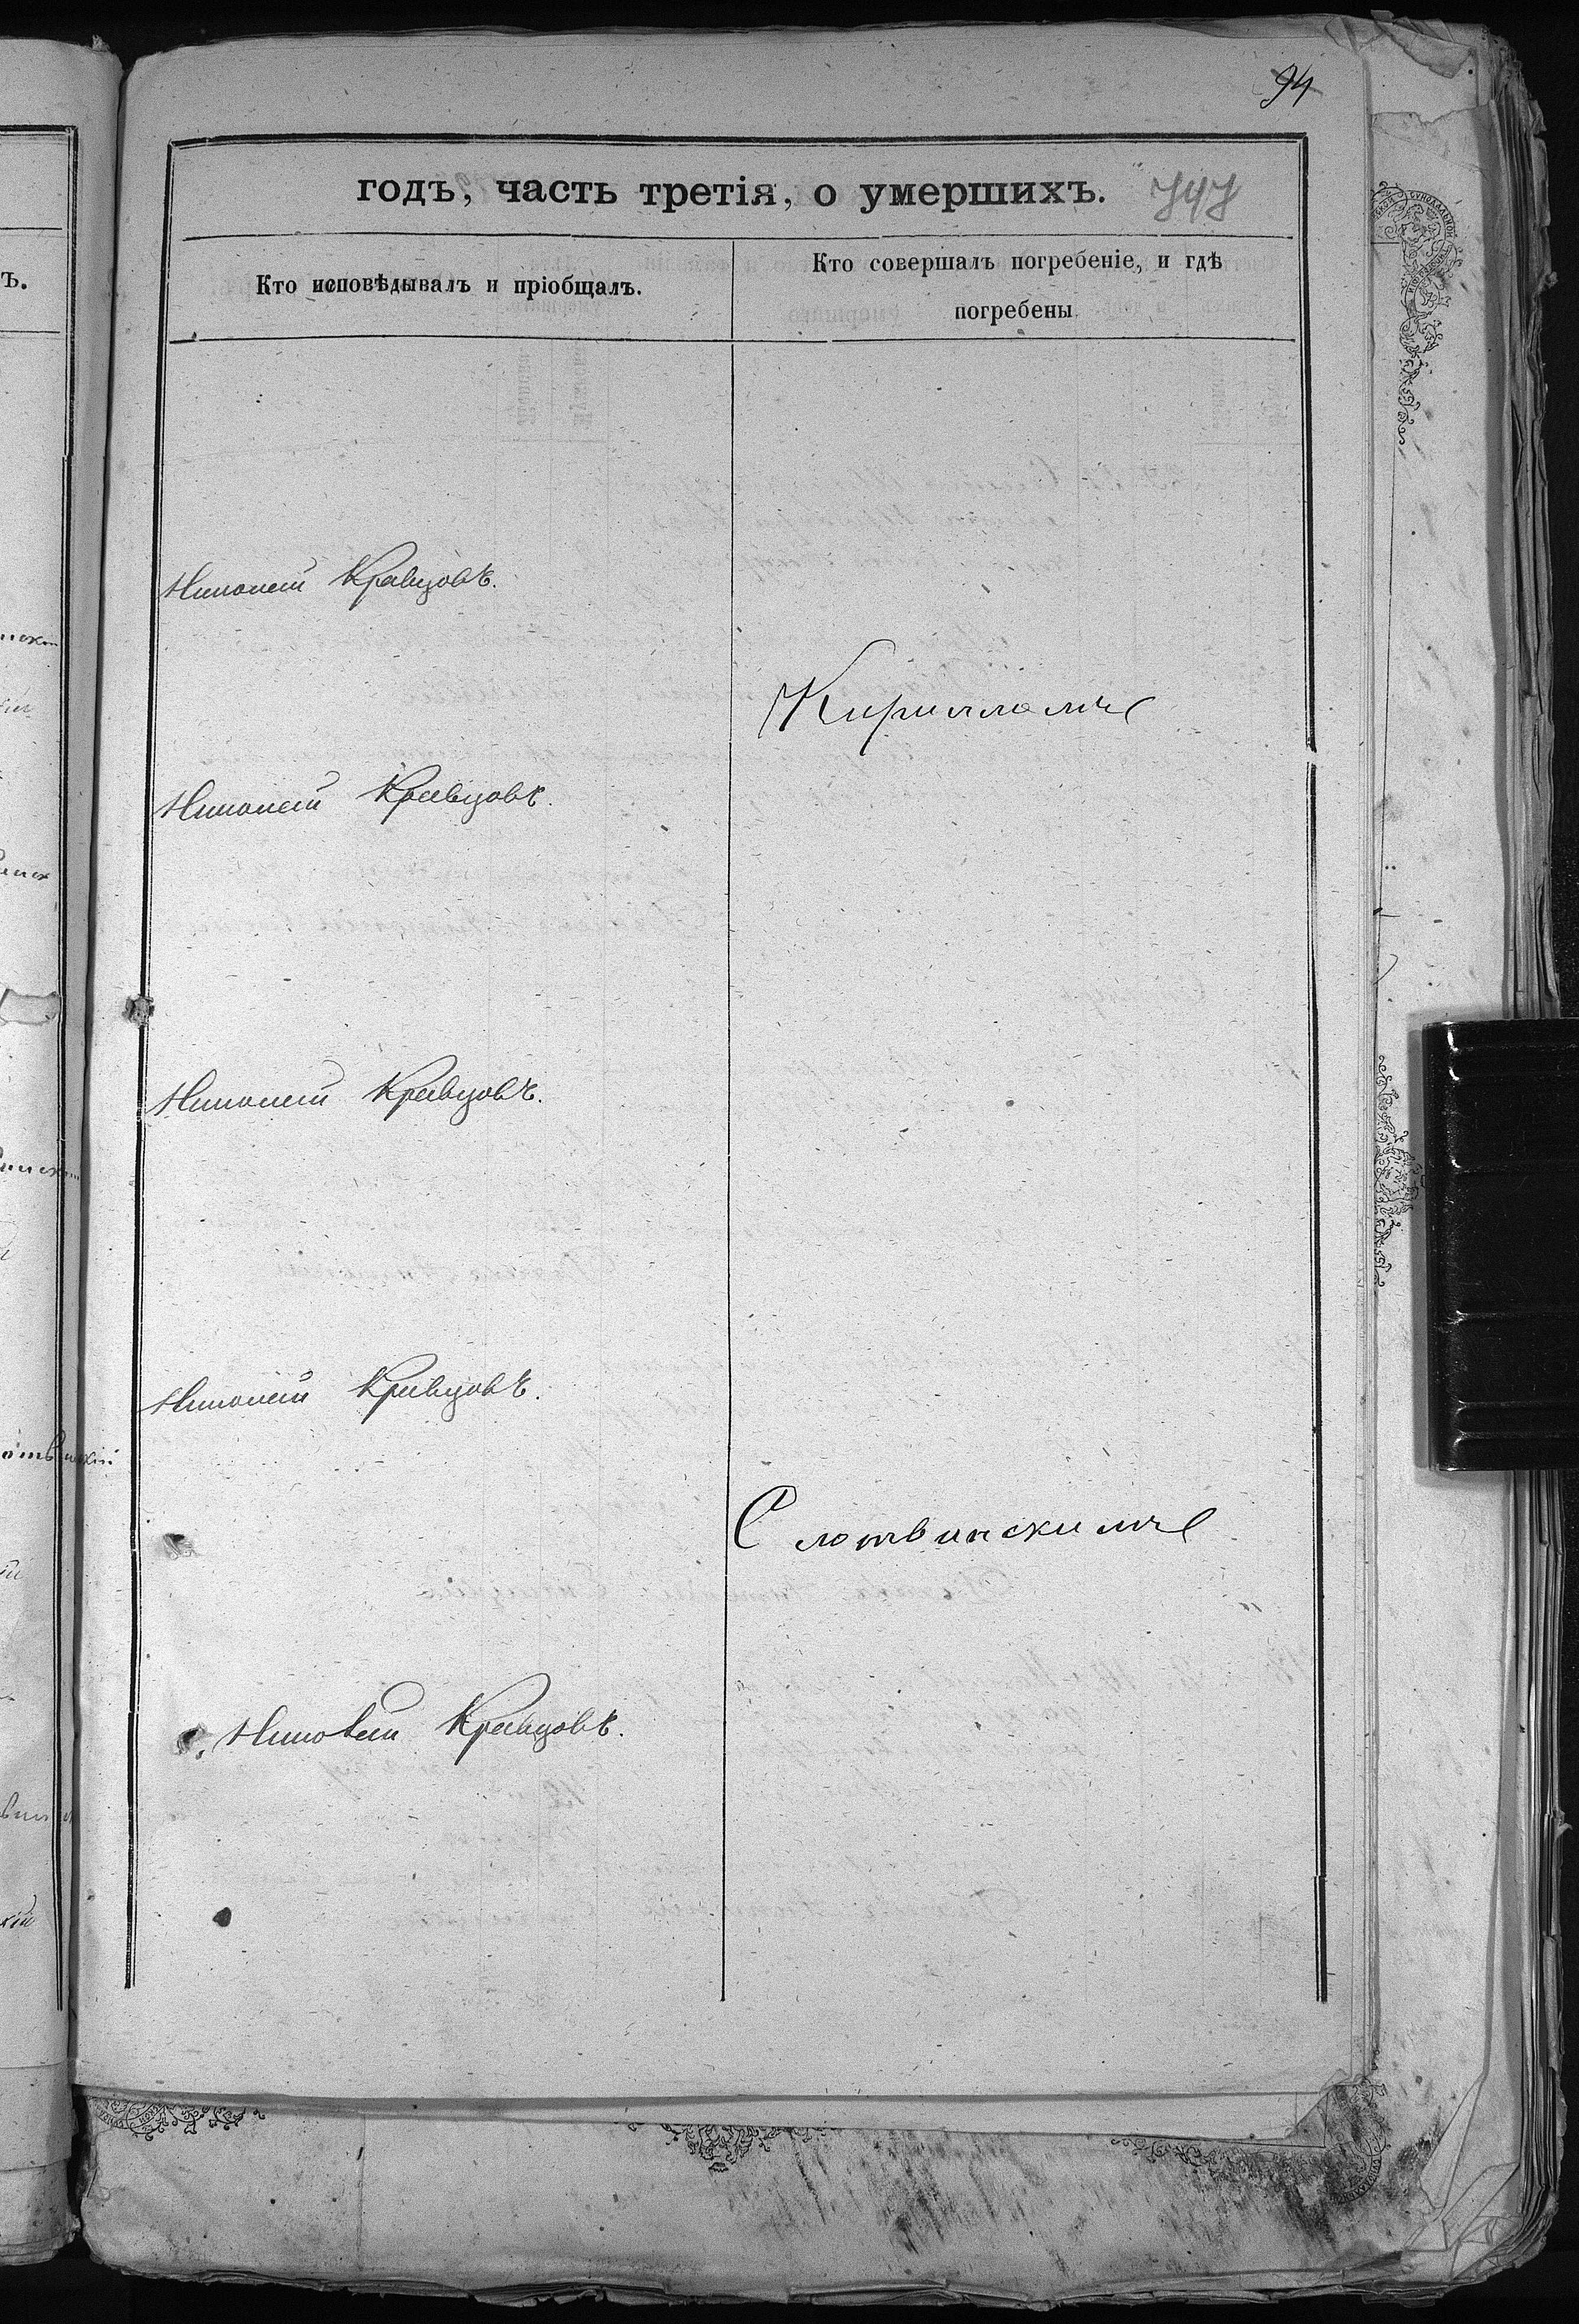 94
годъ, часть третія, о умершихъ. 747
Кто исповѣдывалъ и пріобщалъ.
Кто совершалъ погребеніе, и гдѣ
погребены
Николай Кравцовъ.
Кирилломъ
Николай Кравцовъ.
Николай Кравцовъ.
Николай Кравцовъ.
Слотвинскимъ
Николай Кравцовъ.